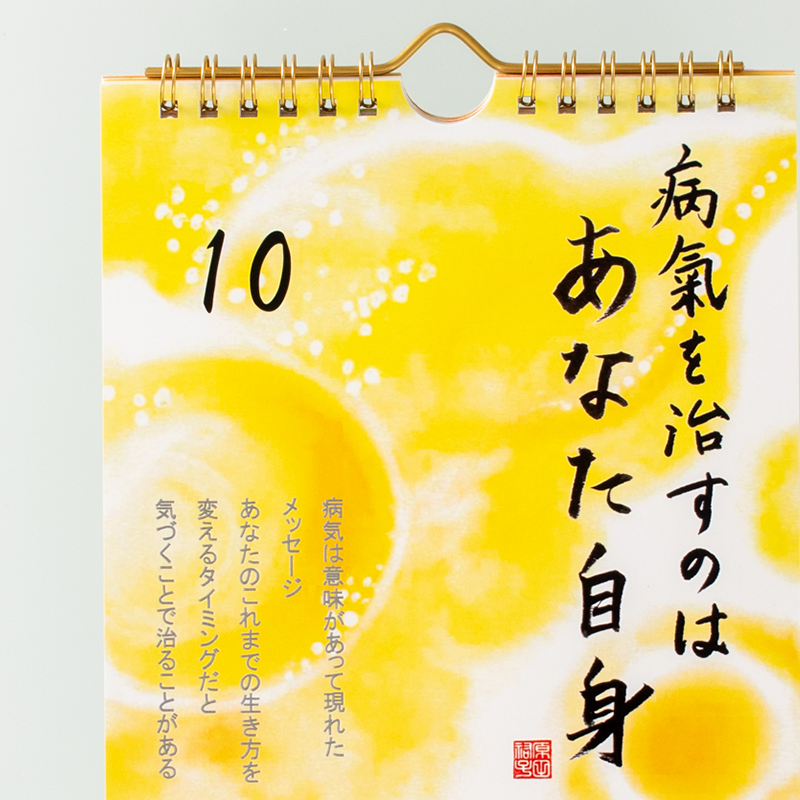 病氣を治すのは
あなた自身
10
病気は意味があって現れた
メッセージ
あなたのこれまでの生き方を
変えるタイミングだと
気づくことで治ることがある